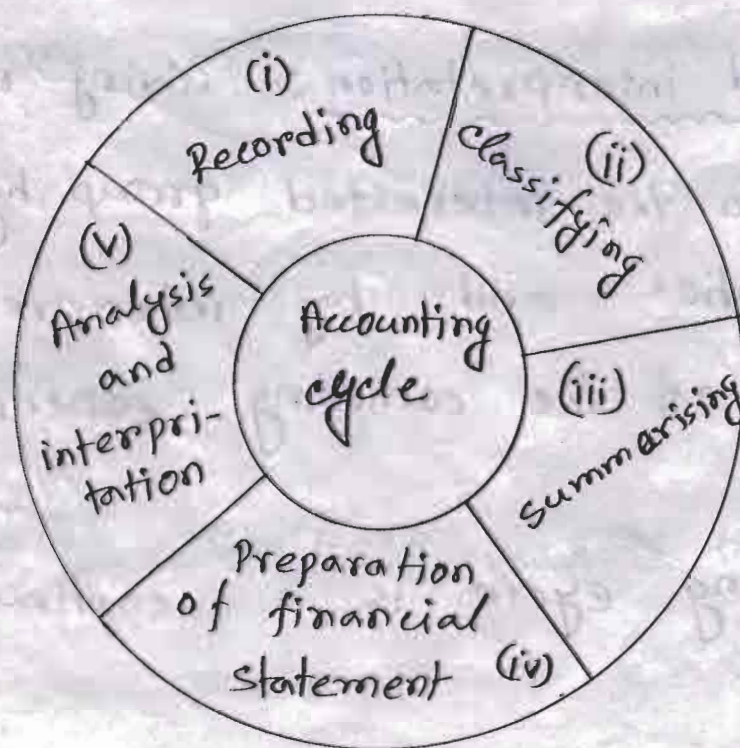 (i)
Recording
(ii)
Classifying
(iii)
summerising
Preparation
of financial
statement (iv)
(v)
Analysis
and
interpri-
tation
Accounting
cycle